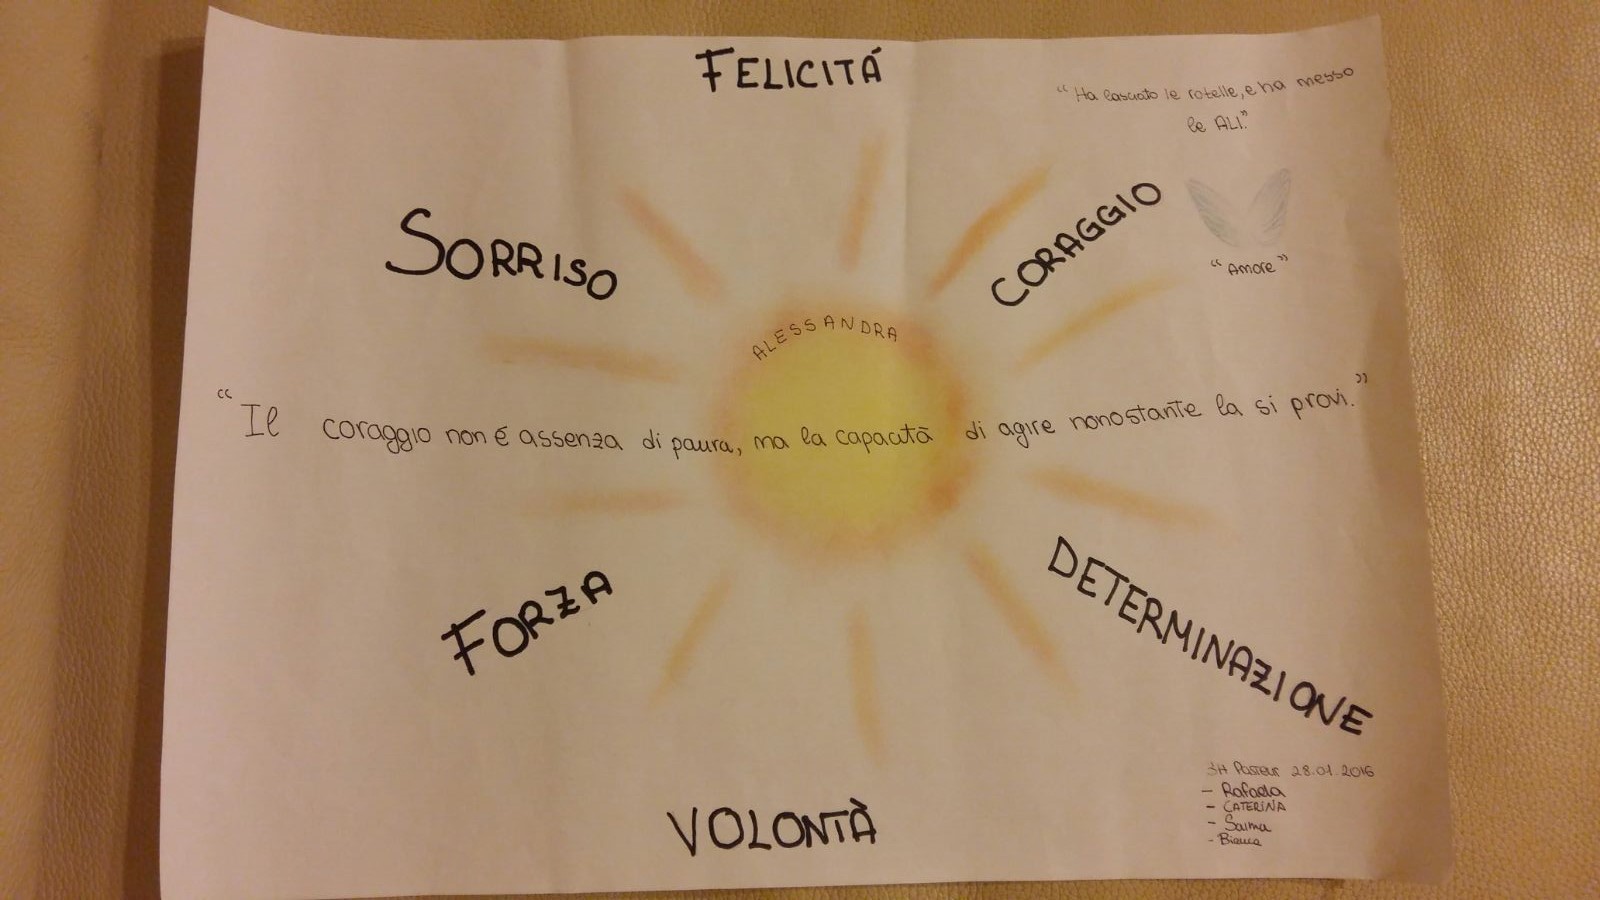 FELICITÁ
"Ha lasciato le rotelle, e ha messo
le ALI."
CORAGGIO
SORRISO
"Amore"
ALESSANDRA
"Il coraggio non é assenza di paura, ma la capacità di agire nonostante la si provi."
FORZA
DETERMINAZIONE
VOLONTÀ
3H Pasteur 28.01.2016
- Rafaela
- CATERINA
- Saima
- Bianca